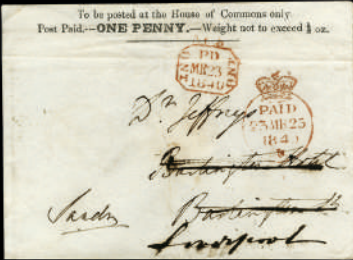 To be posted at the House of Commons only.
Post Paid.—ONE PENNY.—Weight not to exceed ½ oz.
PD
MR 23
1840
PAID
1840
Dr. Jeffreys
Burlington Hotel
Burlington St
Liverpool